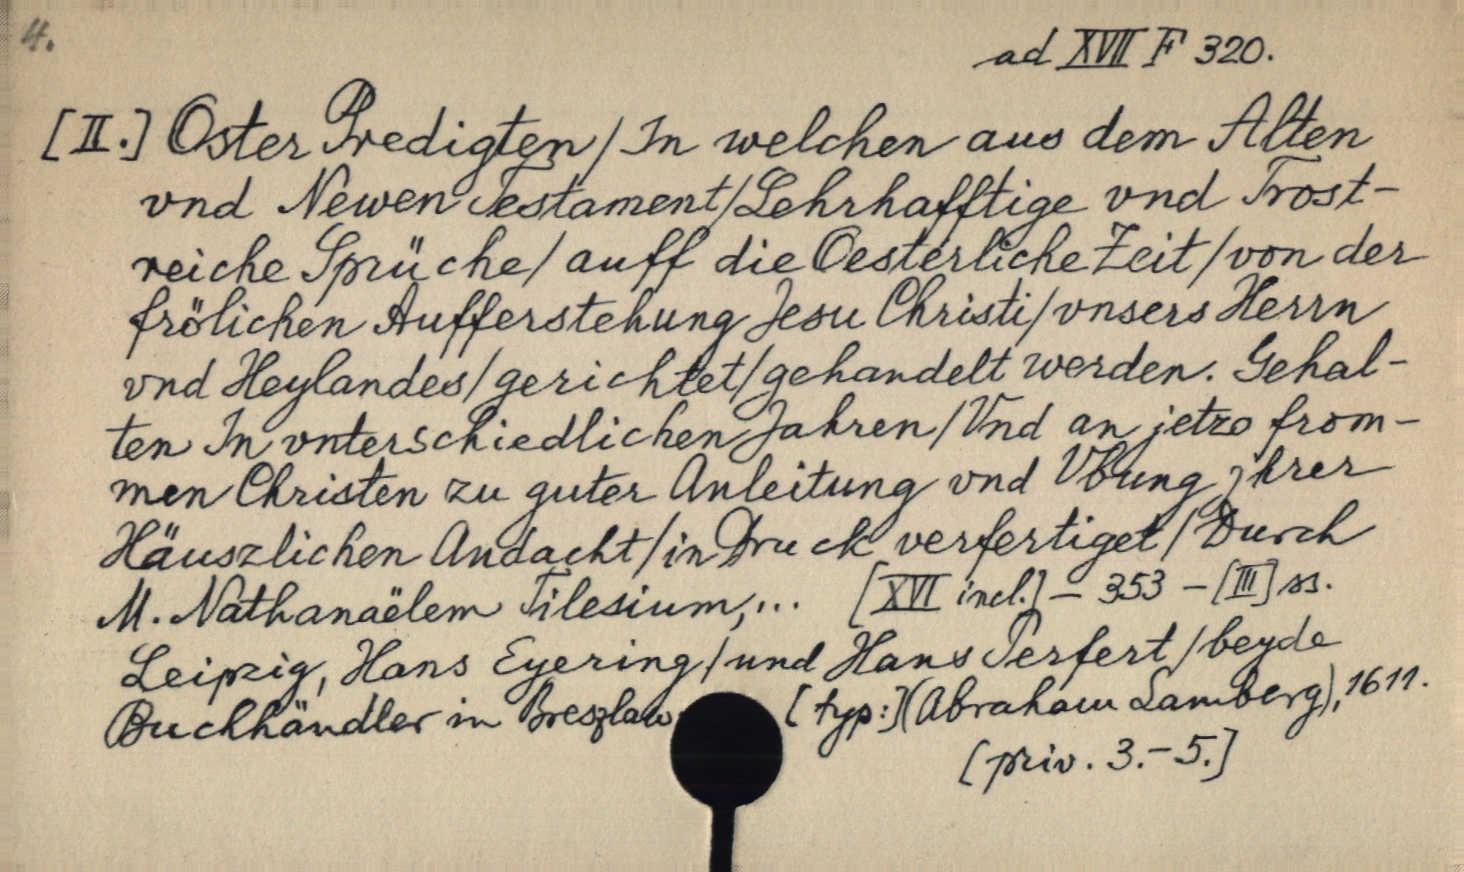 4.
ad XVII F 320.
[II.] Oster Predigten / In welchen aus dem Alten
vnd Newen Testament / Lehrhafftige vnd Trost-
reiche Sprüche / auff die Oesterliche Zeit / von der
frölichen Aufferstehung Jesu Christi / vnsers Herrn
vnd Heylandes / gerichtet / gehandelt werden. Gehal-
ten In vnterschiedlichen Jahren / Vnd an jetzo from-
men Christen zu guter Anleitung vnd Vbung jhrer
Häuszlichen Andacht / in Druck verfertiget / Durch
M. Nathanaëlem Tilesium, ... [XVI incl.] – 353 – [III] ss.
Leipzig, Hans Eyering / und Hans Perfert / beyde
Buchhändler in Breszlaw [typ:] (Abraham Lamberg), 1611.
[priv. 3.–5.]